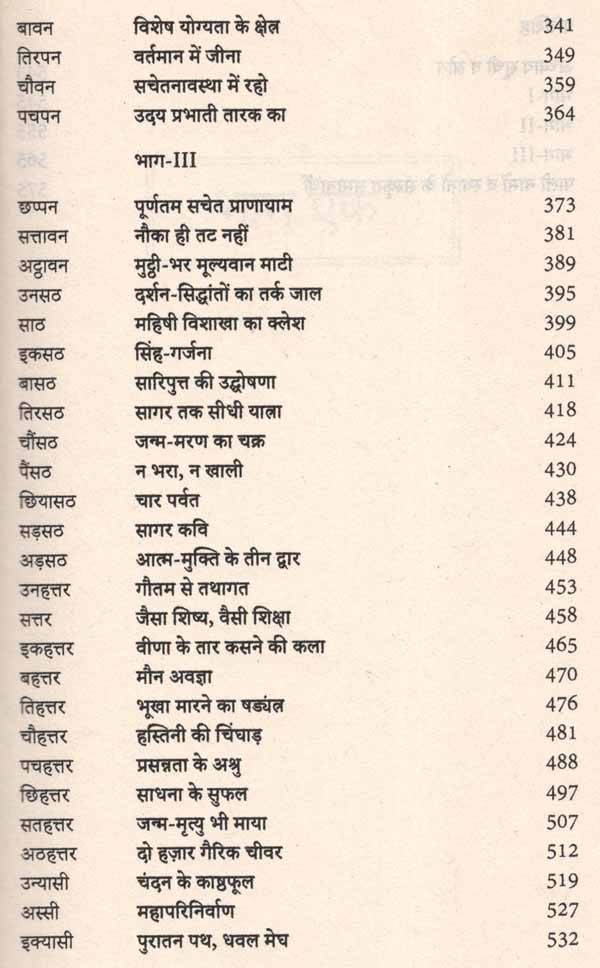 बावन विशेष योग्यता के क्षेत्र 341
तिरपन वर्तमान में जीना 349
चौवन सचेतनावस्था में रहो 359
पचपन उदय प्रभाती तारक का 364
भाग-III
छप्पन पूर्णतम सचेत प्राणायाम 373
सत्तावन नौका ही तट नहीं 381
अट्ठावन मुट्ठी-भर मूल्यवान माटी 389
उनसठ दर्शन-सिद्धांतों का तर्क जाल 395
साठ महिषी विशाखा का क्लेश 399
इकसठ सिंह-गर्जना 405
बासठ सारिपुत्त की उद्घोषणा 411
तिरसठ सागर तक सीधी यात्रा 418
चौंसठ जन्म-मरण का चक्र 424
पैंसठ न भरा, न खाली 430
छियासठ चार पर्वत 438
सड़सठ सागर कवि 444
अड़सठ आत्म-मुक्ति के तीन द्वार 448
उनहत्तर गौतम से तथागत 453
सत्तर जैसा शिष्य, वैसी शिक्षा 458
इकहत्तर वीणा के तार कसने की कला 465
बहत्तर मौन अवज्ञा 470
तिहत्तर भूखा मारने का षड्यंत्र 476
चौहत्तर हस्तिनी की चिंघाड़ 481
पचहत्तर प्रसन्नता के अश्रु 488
छिहत्तर साधना के सुफल 497
सतहत्तर जन्म-मृत्यु भी माया 507
अठहत्तर दो हज़ार गैरिक चीवर 512
उन्यासी चंदन के काष्ठफूल 519
अस्सी महापरिनिर्वाण 527
इक्यासी पुरातन पथ, धवल मेघ 532